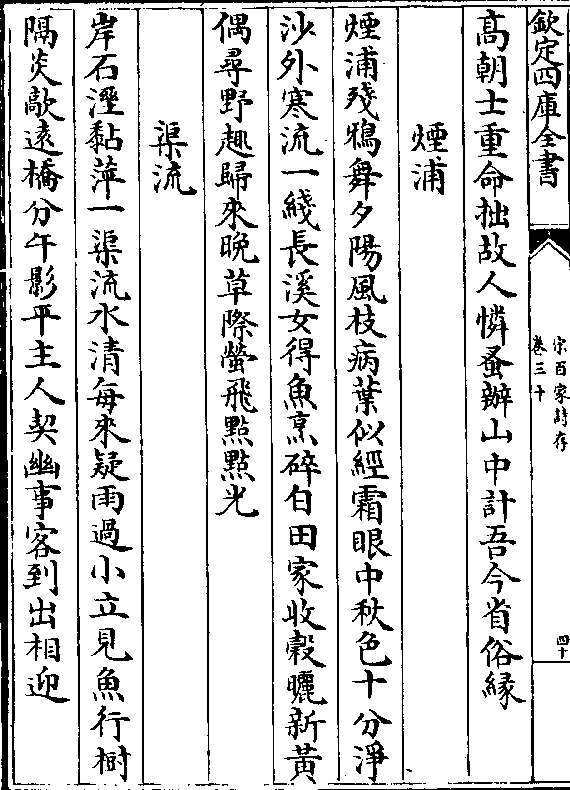 欽定四庫全書
宋百家詩存
卷三十
四十
高朝士重命拙故人憐蚤辦山中計吾今省俗縁
煙浦
煙浦殘鴉舞夕陽風枝病葉似經霜眼中秋色十分淨
沙外寒流一綫長溪女得魚烹碎白田家收穀曬新黃
偶尋野趣歸來晚草際螢飛點點光
渠流
岸石溼黏萍一渠流水清每來疑雨過小立見魚行樹
隔炎歊遠橋分午影平主人契幽事客到出相迎